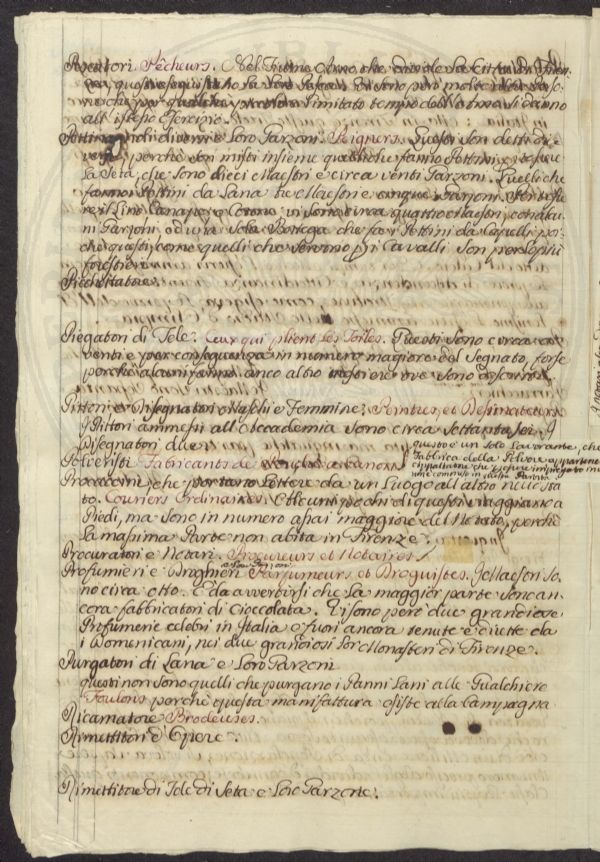 Pescatori. Pêcheurs. Nel Fiume Arno che divide la Città di
questi esercitano la loro
che per qualche limitato tempo dell'anno si danno
all' istesso Esercizio.
Pettinagnoli diversi e loro Garzoni. Peigners. Questi son detti di
versi, perchè son misti insieme quelli che fanno Pettini, e
la Seta, che sono dieci Maestri e circa venti Garzoni. Quelli che
fanno Pettini da Lana tre Maestri e cinque Garzoni. Per
re il Lino Canapa, e Cotone vi sono circa quattro Maestri, con alcu
ni Garzoni, ed una sola Bottega che fa i Pettini da Capelli, poi
che questi, come quelli che servono pei Cavalli son per lo più
forestieri.
Picchettatore.
Piegatori di Tele. Ceux qui plient les Toiles. Questi sono circa
venti e per conseguenza in numero maggiore del segnato, forse
perchè alcuni fanno anco altro mestiere ove sono descritti.
Pittori e Disegnatori Maschi e Femmine. Peintres, et Dessinateurs
I Pittori ammessi all' Accademia sono circa Settanta sei. I
Disegnatori due
Polveristi Fabricants de Poudre a Canon.
questo è un solo Lavorante, che
Fabbrica della Polvere appartenente
Procaccini, che portano Lettere da un Luogo all' altro nello sta
to. Couriers Ordinaires. Alcuni pochi di questi viaggiano a
Piedi, ma sono in numero assai maggiore del Notato, perchè
la massima Parte non abita in Firenze.
Procuratori e Notari. Procureurs et Notaires
Profumieri e Droghieri e loro Garzoni. Parfumeurs et Droguistes. I Maestri so
no circa otto. È da avvertirsi che la maggior parte sono an
cora fabbricatori di Cioccolata. Vi sono però due grandiose
Profumerie celebri in Italia e fuori ancora tenute e dirette da
i Domenicani, nei due grandiosi lor Monasteri di Firenze.
Purgatori di Lana e loro Garzoni
questi non sono quelli che purgano i Panni Lani alle Gualchiere
Foulons perchè questa manifattura esiste alla Campagna
Ricamatore Brodeuses.
Rimettitori d' Opere.
Rimettitore di Tele di Seta e loro Garzone.